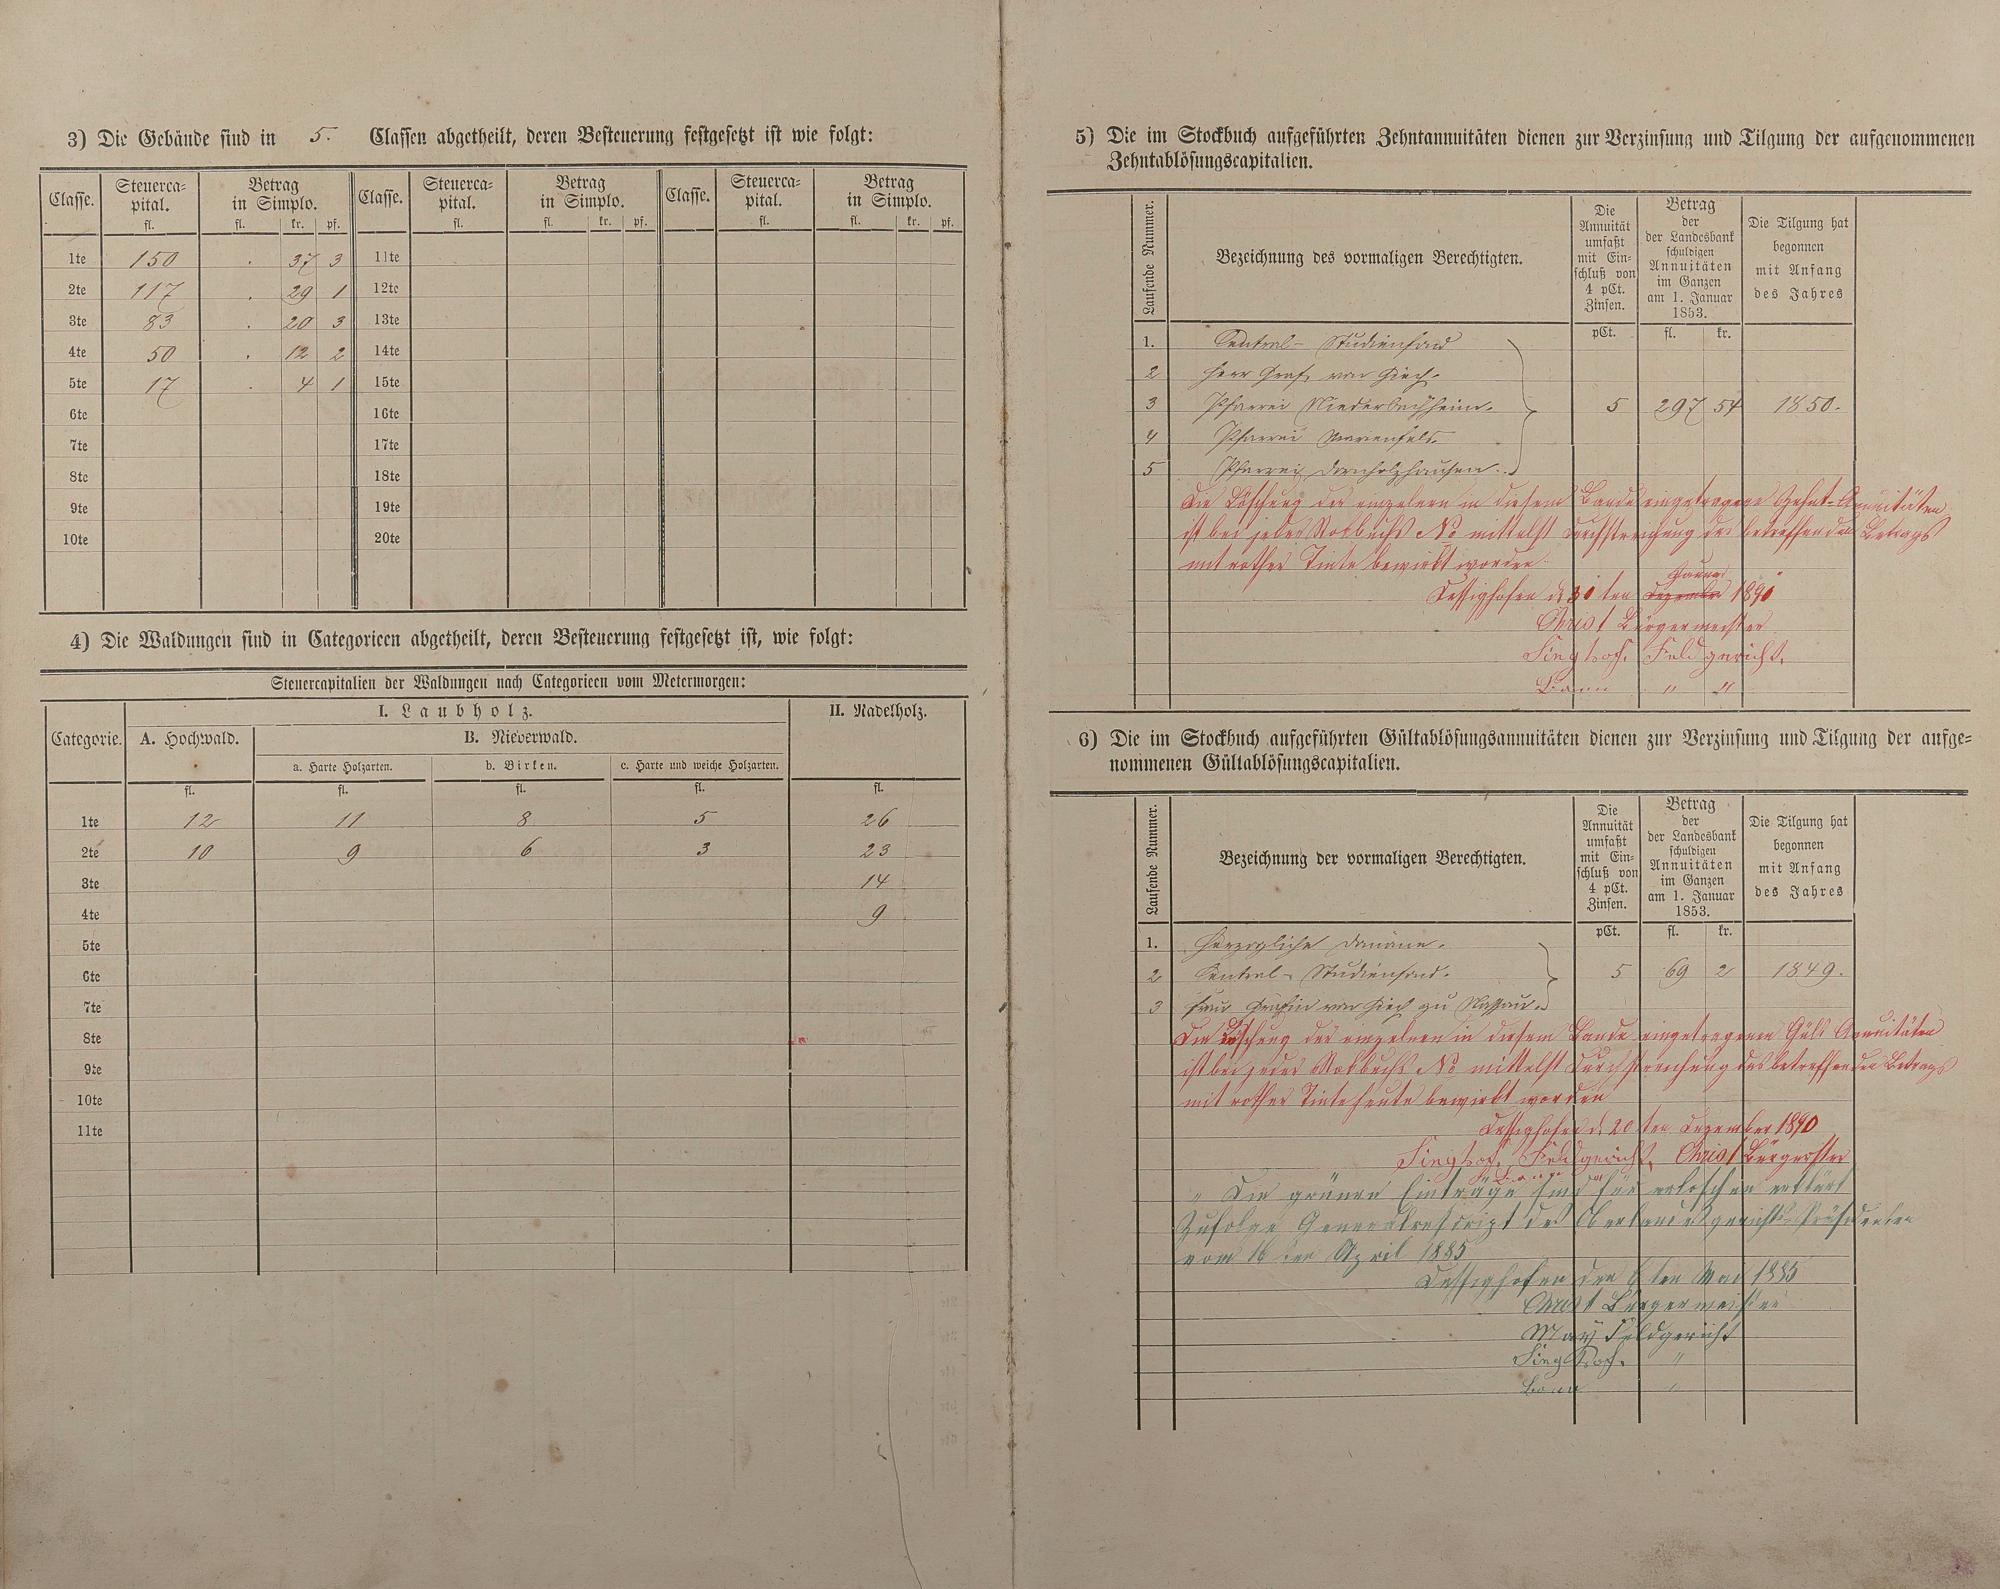 3) Die Gebäude sind in 5. Classen abgetheilt, deren Besteuerung festgesetzt ist wie folgt:
Classe. Steuerca-pital. Betrag in Simplo. Classe. Steuerca-pital. Betrag in Simplo. Classe. Steuerca-pital. Betrag in Simplo.
fl. fl. kr. pf. fl. fl. kr. pf. fl. fl. kr. pf.
1te 150 . 37 3 11te
2te 117 . 29 1 12te
3te 83 . 20 3 13te
4te 50 . 12 2 14te
5te 17 . 4 1 15te
6te 16te
7te 17te
8te 18te
9te 19te
10te 20te
4) Die Waldungen sind in Categorieen abgetheilt, deren Besteuerung festgesetzt ist, wie folgt:
Steuercapitalien der Waldungen nach Categorieen vom Metermorgen:
I. Laubholz. II. Nadelholz.
Categorie. A. Hochwald. B. Niederwald.
a. Harte Holzarten. b. Birken. c. Harte und weiche Holzarten.
fl. fl. fl. fl. fl.
1te 12 11 8 5 26
2te 10 9 6 3 23
3te 14
4te 9
5te
6te
7te
8te
9te
10te
11te
5) Die im Stockbuch aufgeführten Zehntannuitäten dienen zur Verzinsung und Tilgung der aufgenommenen
Zehntablösungscapitalien.
Laufende Nummer.
Bezeichnung des vormaligen Berechtigten.
Die Annuität umfaßt mit Ein-schluß von 4 pCt. Zinsen.
Betrag der der Landesbank schuldigen Annuitäten im Ganzen am 1. Januar 1853.
Die Tilgung hat begonnen mit Anfang des Jahres
pCt. fl. kr.
1. Central-Studienfond
2 Herr Graf von Giech.
3 Pfarrei Niederbachheim. 5 297 54 1850.
4 Pfarrei Marienfels.
5 Pfarrei Dornholzhausen.
Die Löschung der einzelnen in diesem Bande eingetragenen Zehnt-Annuitäten
ist bei jeder Stockbuchs No mittelst Durchstreichung des betreffenden Betrags
mit rother Tinte bewirkt worden.
Dessighofen d. 31 ten Dezember Januar 1891
Christ Bürgermeister
Singhof. Feldgericht.
" "
6) Die im Stockbuch aufgeführten Gültablösungsannuitäten dienen zur Verzinsung und Tilgung der aufge-
nommenen Gültablösungscapitalien.
Laufende Nummer.
Bezeichnung der vormaligen Berechtigten.
Die Annuität umfaßt mit Ein-schluß von 4 pCt. Zinsen.
Betrag der der Landesbank schuldigen Annuitäten im Ganzen am 1. Januar 1853.
Die Tilgung hat begonnen mit Anfang des Jahres
pCt. fl. kr.
1. Herzogliche Domäne.
2 Central-Studienfond. 5 69 2 1849.
3 Frau Gräfin von Giech zu Nassau.
Die Löschung der einzelnen in diesem Bande eingetragenen Gült Annuitäten
ist bei jeder Stockbuchs No mittelst Durchstreichung des betreffenden Betrags
mit rother Tinte heute bewirkt worden
Dessighofen d. 20 ten Dezember 1890
Singhof. Feldgericht. Christ Bürgermstr
" Die grünen Einträge sind für erloschen erklärt
Zufolge Generalrescript des Oberlandesgerichts-Präsidenten
vom 16 ten April 1885
Dessighofen den 6 ten Mai 1885
Christ Bürgermeister
May Feldgericht
Singhof. "
"